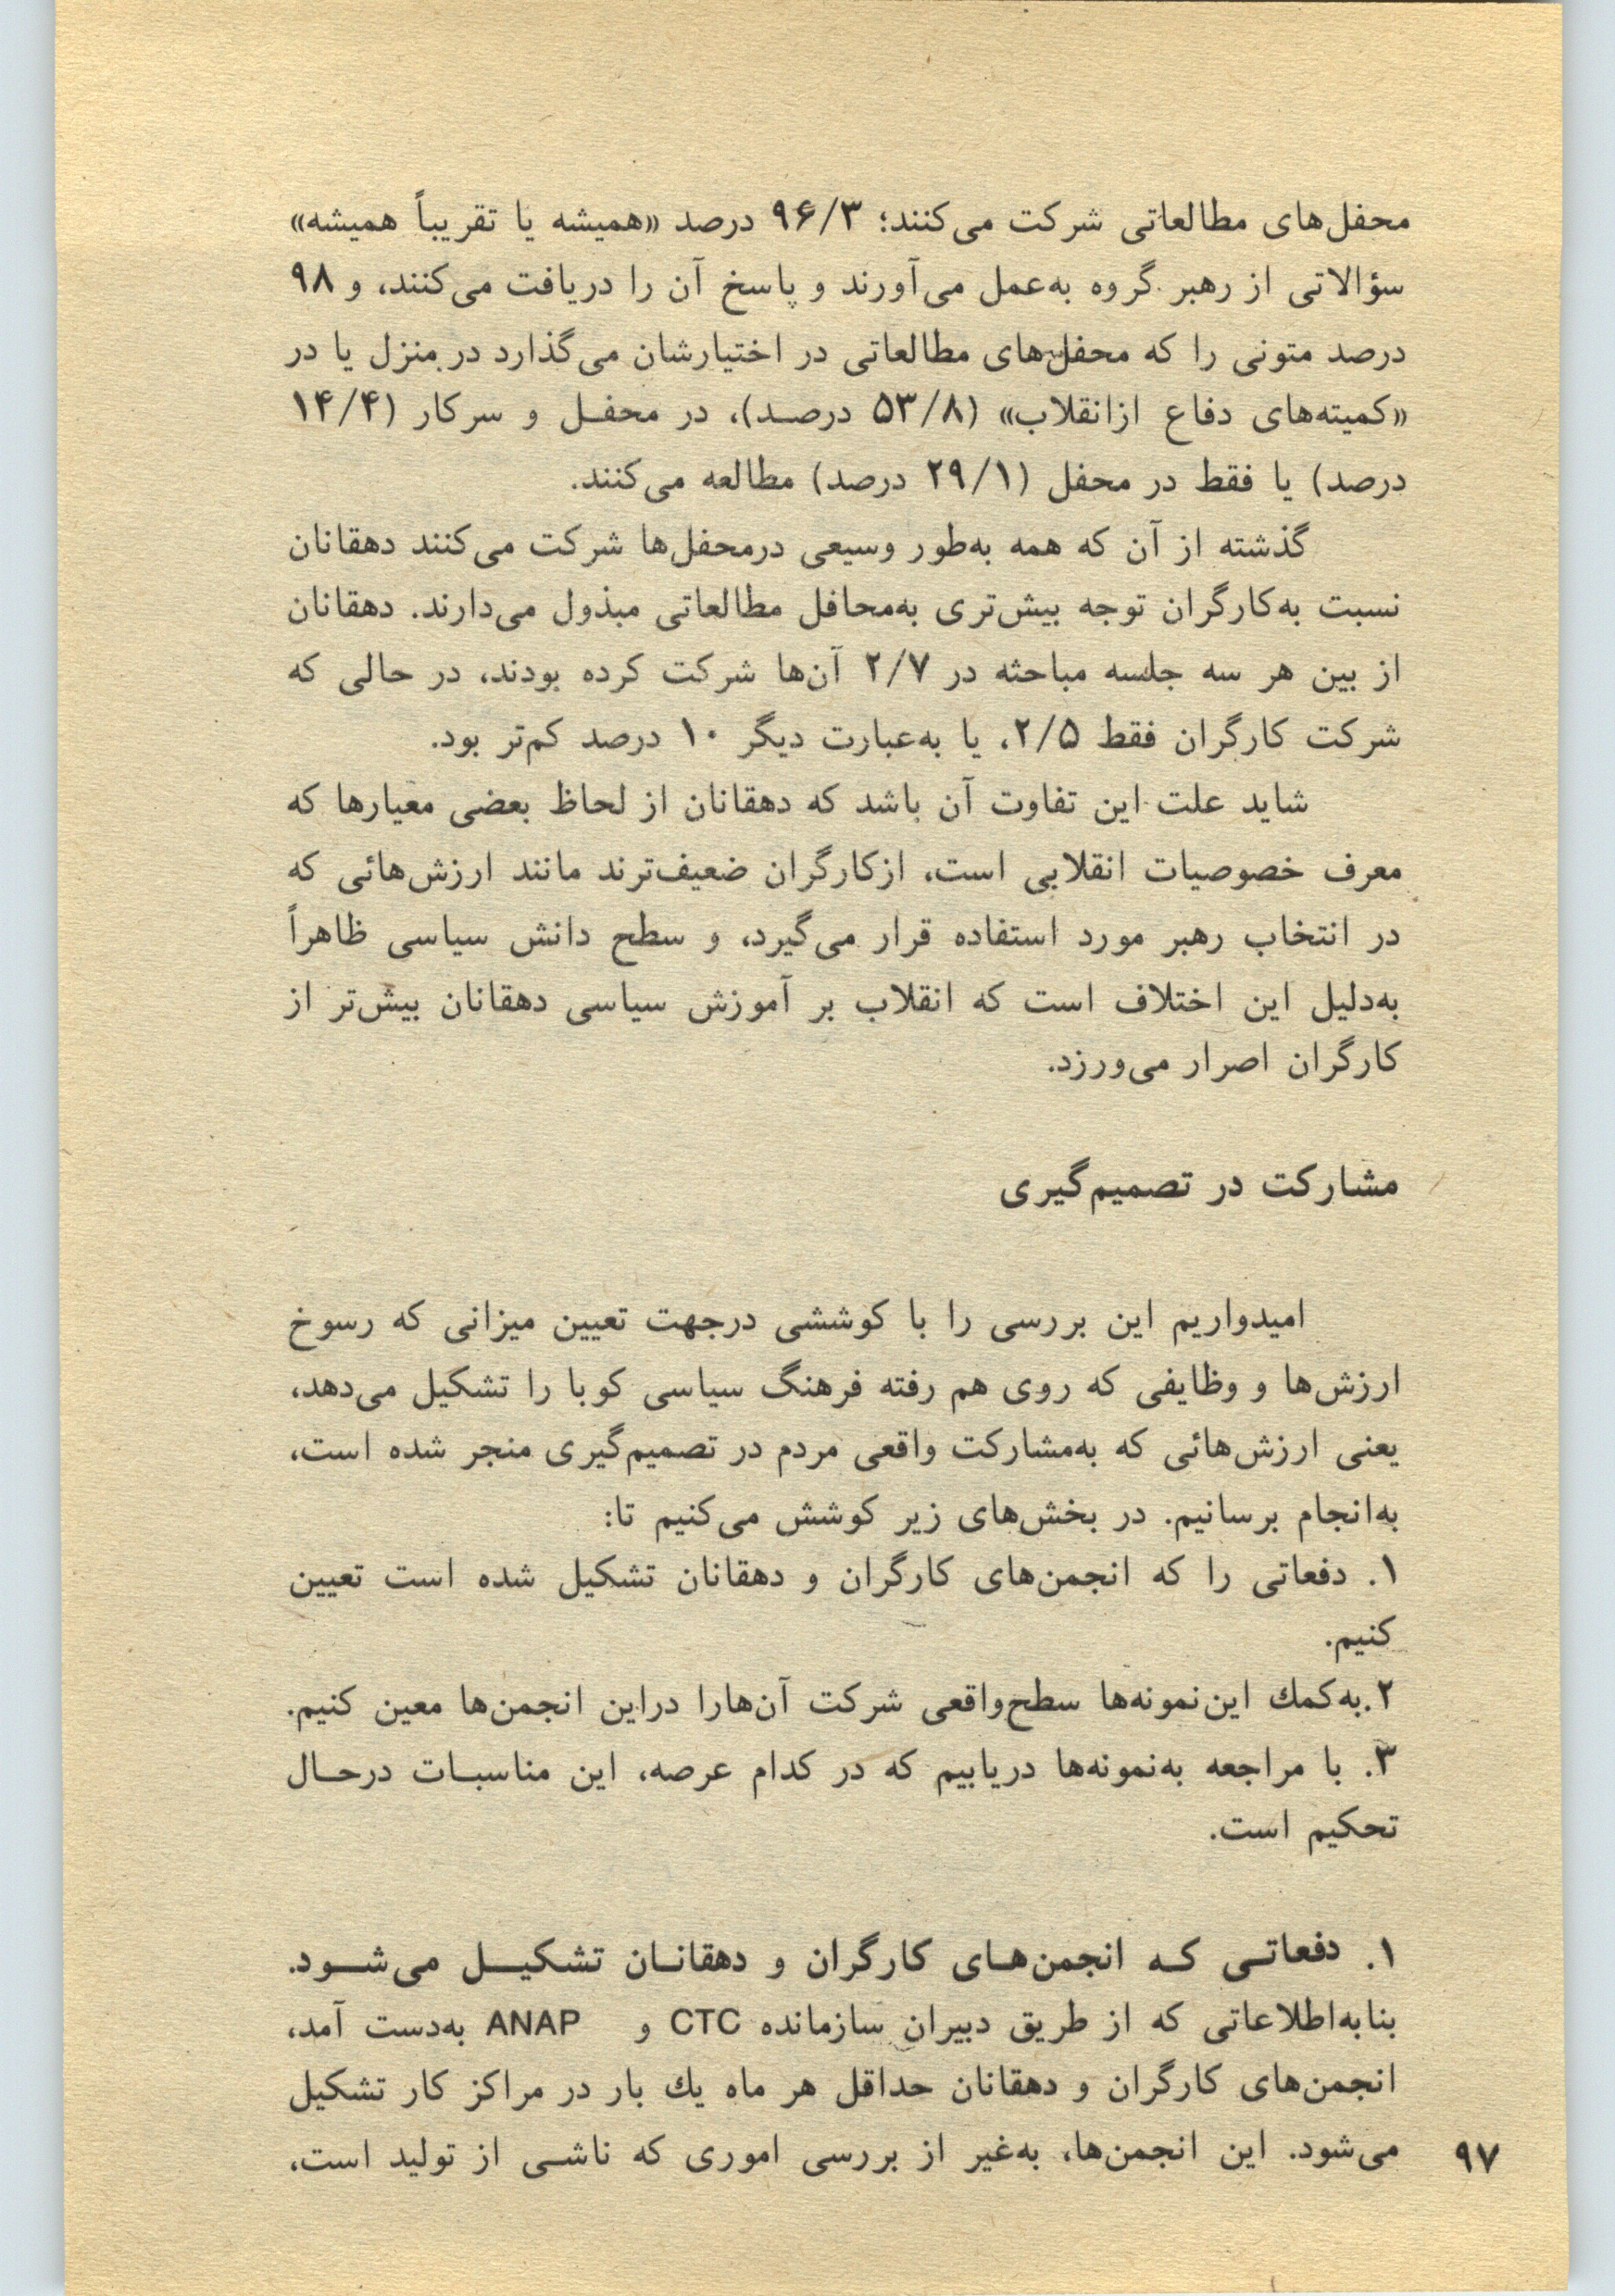 محفل‌های مطالعاتی شرکت می‌کنند؛ ۹۶/۳ درصد «همیشه یا تقریباً همیشه»
سؤالاتی از رهبر گروه به‌عمل می‌آورند و پاسخ آن را دریافت می‌کنند، و ۹۸
درصد متونی را که محفل‌های مطالعاتی در اختیارشان می‌گذارد در منزل یا در
«کمیته‌های دفاع ازانقلاب» (۵۳/۸ درصد)، در محفل و سرکار (۱۴/۴
درصد) یا فقط در محفل (۲۹/۱ درصد) مطالعه می‌کنند.
گذشته از آن که همه به‌طور وسیعی درمحفل‌ها شرکت می‌کنند دهقانان
نسبت به‌کارگران توجه بیش‌تری به‌محافل مطالعاتی مبذول می‌دارند. دهقانان
از بین هر سه جلسه مباحثه در ۲/۷ آن‌ها شرکت کرده بودند، در حالی که
شرکت کارگران فقط ۲/۵، یا به‌عبارت دیگر ۱۰ درصد کم‌تر بود.
شاید علت این تفاوت آن باشد که دهقانان از لحاظ بعضی معیارها که
معرف خصوصیات انقلابی است، ازکارگران ضعیف‌ترند مانند ارزش‌هائی که
در انتخاب رهبر مورد استفاده قرار می‌گیرد، و سطح دانش سیاسی ظاهراً
به‌دلیل این اختلاف است که انقلاب بر آموزش سیاسی دهقانان بیش‌تر از
کارگران اصرار می‌ورزد.
مشارکت در تصمیم‌گیری
امیدواریم این بررسی را با کوششی درجهت تعیین میزانی که رسوخ
ارزش‌ها و وظایفی که روی هم رفته فرهنگ سیاسی کوبا را تشکیل می‌دهد،
یعنی ارزش‌هائی که به‌مشارکت واقعی مردم در تصمیم‌گیری منجر شده است،
به‌انجام برسانیم. در بخش‌های زیر کوشش می‌کنیم تا:
۱. دفعاتی را که انجمن‌های کارگران و دهقانان تشکیل شده است تعیین
کنیم.
۲.به‌کمك این‌نمونه‌ها سطح‌واقعی شرکت آن‌هارا دراین انجمن‌ها معین کنیم.
۳. با مراجعه به‌نمونه‌ها دریابیم که در کدام عرصه، این مناسبات درحال
تحکیم است.
۱. دفعاتی که انجمن‌های کارگران و دهقانان تشکیل می‌شود.
بنابه‌اطلاعاتی که از طریق دبیران سازمانده CTC و ANAP به‌دست آمد،
انجمن‌های کارگران و دهقانان حداقل هر ماه یك بار در مراکز کار تشکیل
می‌شود. این انجمن‌ها، به‌غیر از بررسی اموری که ناشی از تولید است،
۹۷